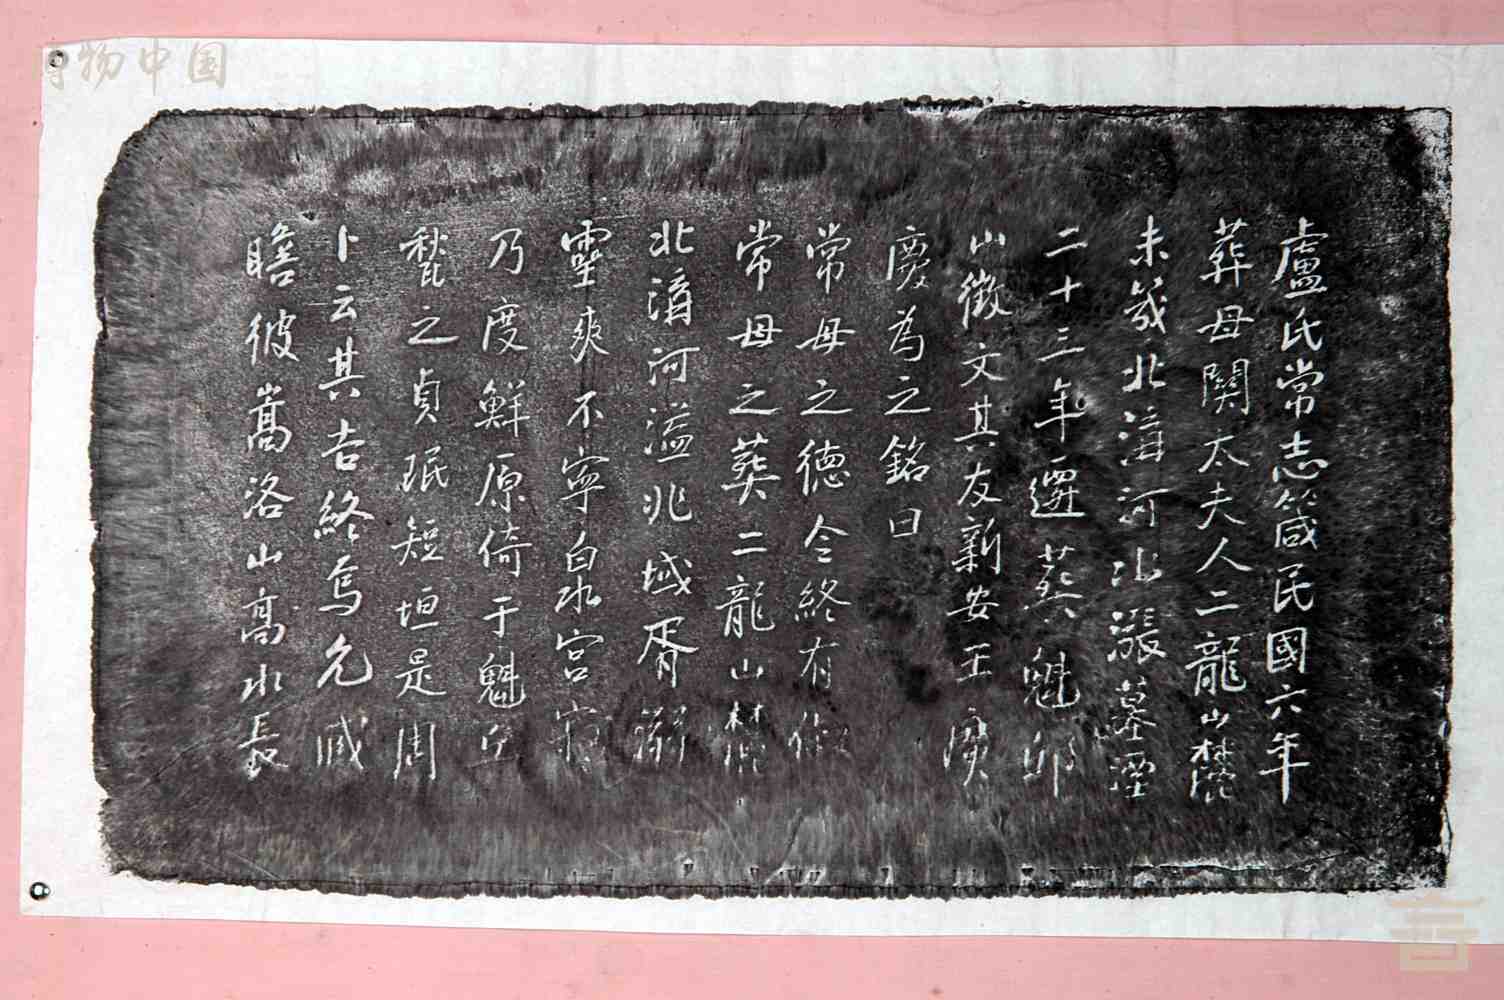 盧氏常志箴民國六年
葬母關太夫人二龍山麓
未幾北澗河水漲墓湮
二十三年遷葬魁邱
山徵文其友新安王廣
慶為之銘曰
常母之德令終有俶
常母之葬二龍山麓
北澗河溢兆域胥淪
靈爽不寧白水宮
乃度鮮原倚于魁丘
甃之貞珉短垣是周
卜云其吉終焉允臧
瞻彼嵩洛山高水長
博物中国